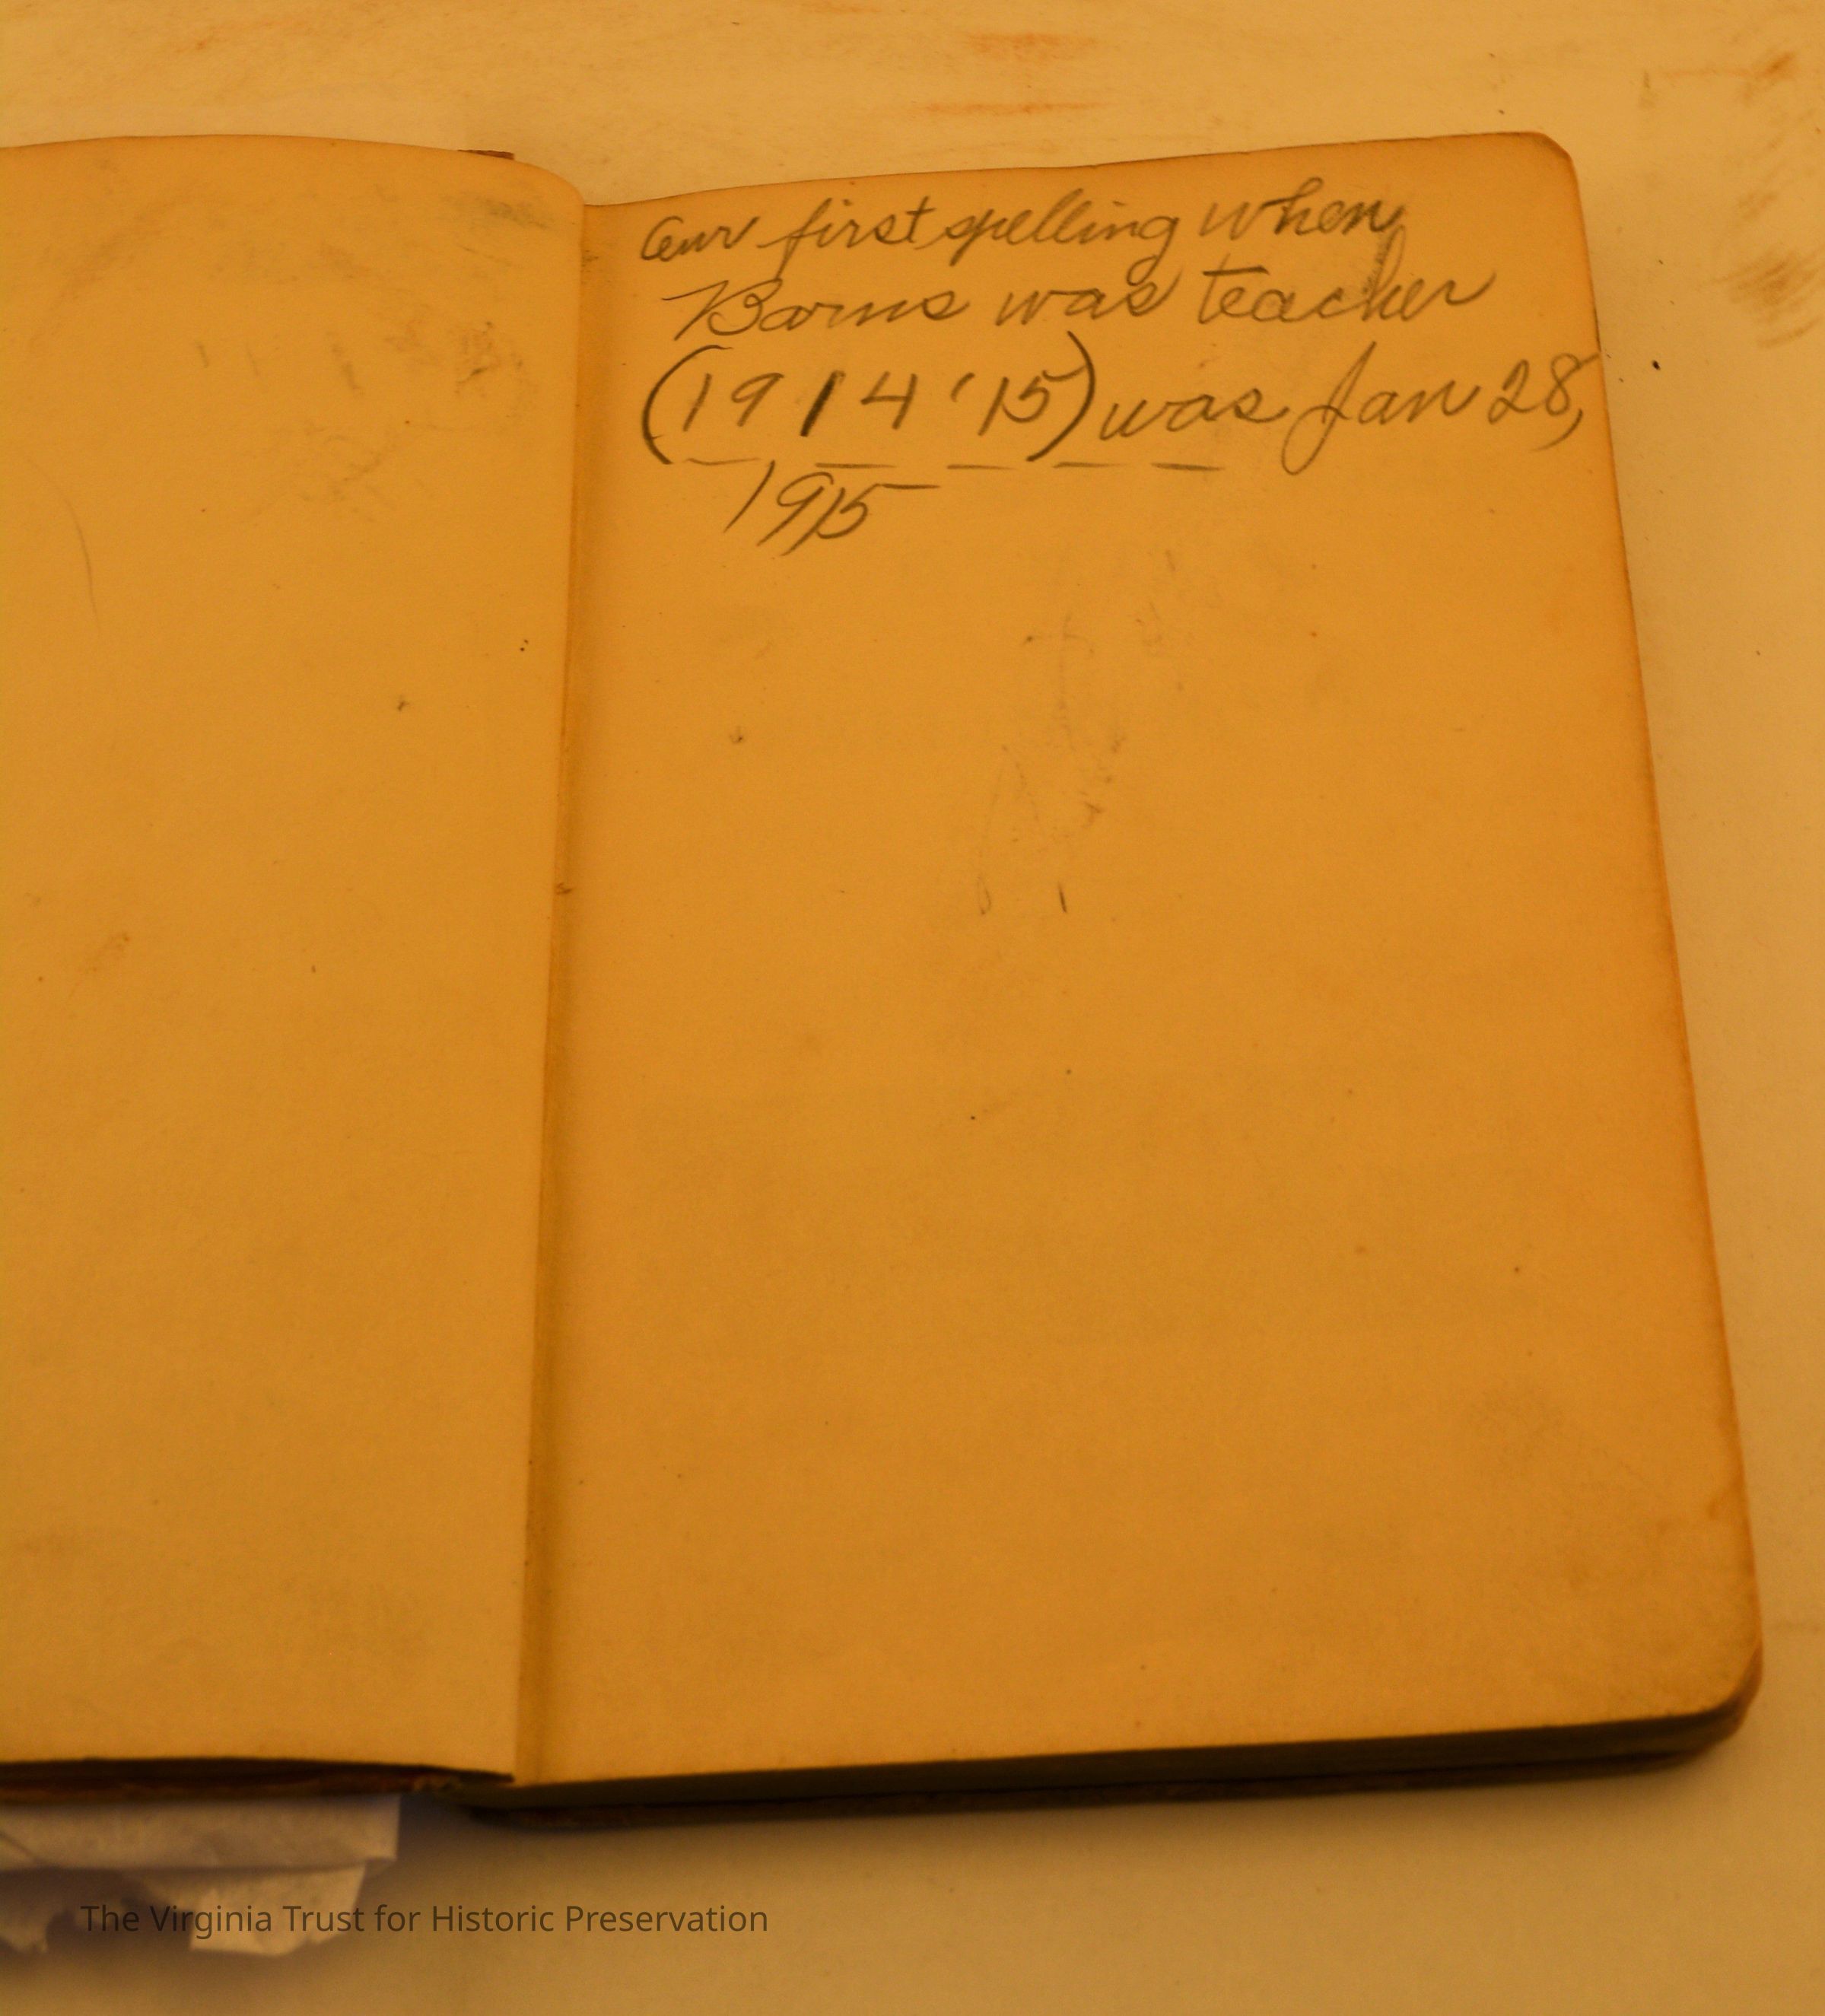 Our first spelling when
Barns was teacher
(1914 '15) was Jan 28,
1915
The Virginia Trust for Historic Preservation